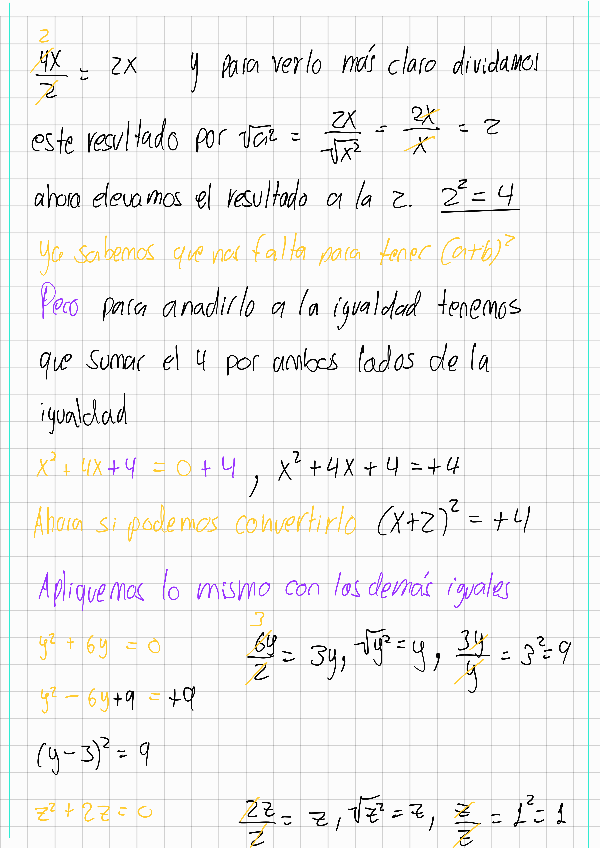 4x/2 = 2x y para verlo más claro dividamos
2
este resultado por √a² = 2x/√x² = 2x/x = 2
ahora elevamos el resultado a la 2. 2² = 4
Ya sabemos que nos falta para tener (a+b)²
Pero para anadirlo a la igualdad tenemos
que sumar el 4 por ambos lados de la
igualdad
x² + 4x + 4 = 0 + 4 , x² + 4x + 4 = +4
Ahora si podemos convertirlo (x+2)² = +4
Apliquemos lo mismo con los demás iguales
3
y² + 6y = 0 6y/2 = 3y, √y² = y, 3y/y = 3² = 9
y² - 6y + 9 = +9
(y - 3)² = 9
z² + 2z = 0 2z/2 = z, √z² = z, z/z = 1² = 1